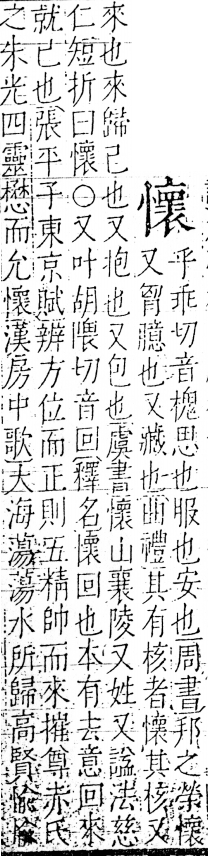 懷
乎乖切音槐思也服也安也周書邦之榮懷
又胷臆也又藏也曲禮其有核者懷其核又
來也來歸己也又抱也又包也虞書懷山襄陵又姓又諡法慈
仁短折曰懷○又叶胡隈切音回釋名懷回也本有去意回來
就己也張平子東京賦辨方位而正則五精帥而來摧尊赤氏
之朱光四靈懋而允懷漢房中歌大海蕩蕩水所歸高賢愉愉